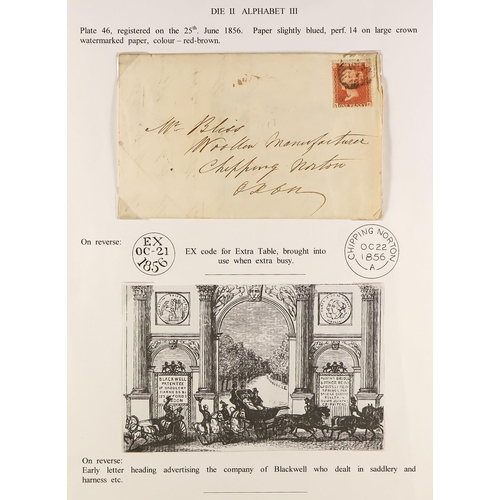 DIE II ALPHABET III
Plate 46, registered on the 25th. June 1856. Paper slightly blued, perf. 14 on large crown
watermarked paper, colour – red-brown.
Mr Bliss
Woollen Manufacturer
Chipping Norton
Oxon
On reverse:
EX
OC-21
1856
EX code for Extra Table, brought into
use when extra busy.
CHIPPING NORTON
OC 22
1856
A
BLACKWELL
PATENTEE
OF SADDLERY
HARNESS &
On reverse:
Early letter heading advertising the company of Blackwell who dealt in saddlery and
harness etc.